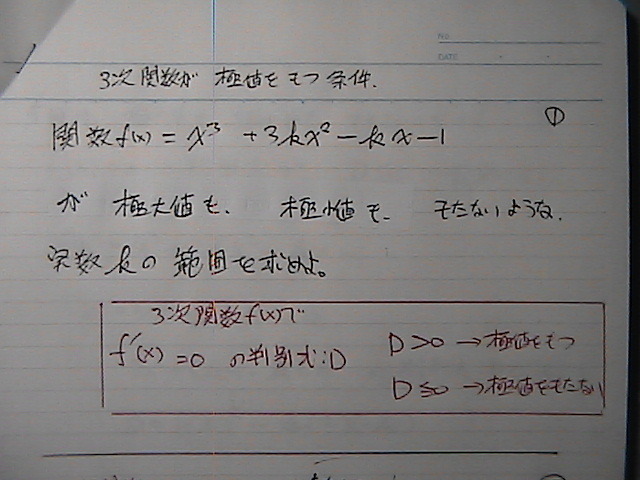 No.
DATE
3次関数が 極値をもつ条件.
①
関数f(x) = x³ + 3kx² - kx - 1
が 極大値も、 極小値も、 もたないような、
実数kの範囲を求めよ。
3次関数f(x)で
f'(x) = 0 の判別式:D
D > 0 → 極値をもつ
D ≤ 0 → 極値をもたない